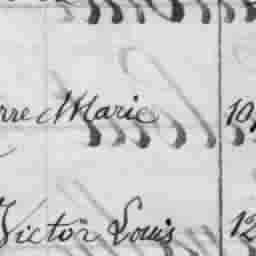 rre Marie 10
Victor Louis 12